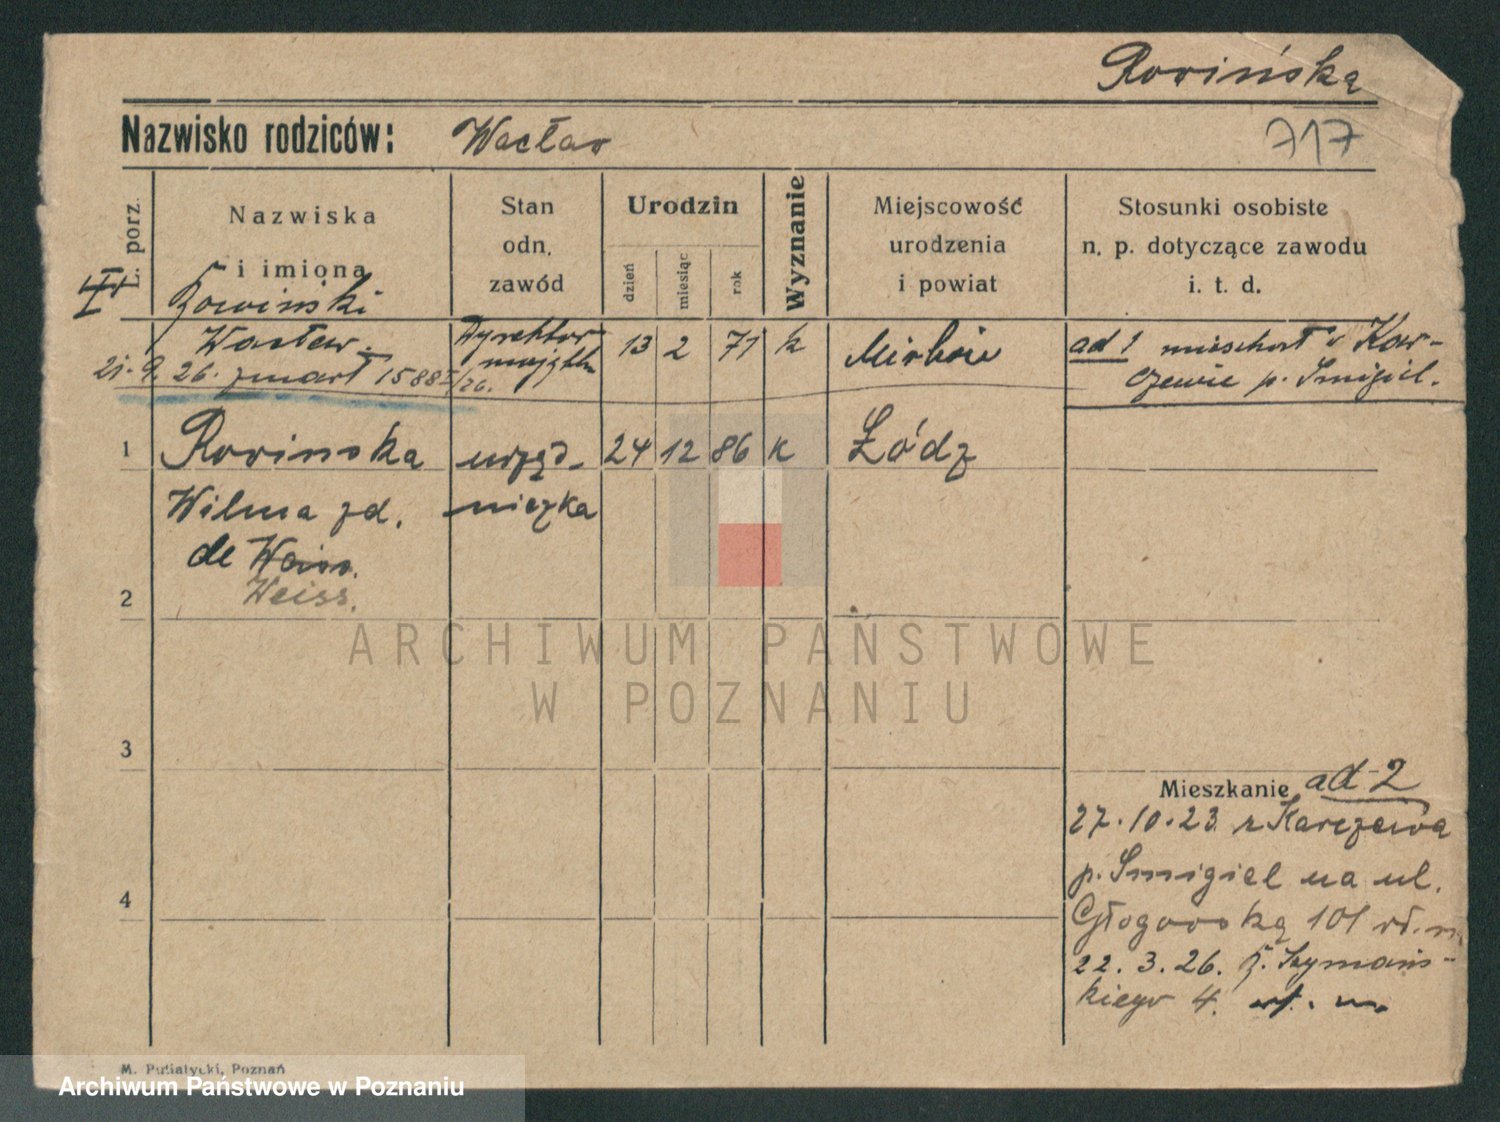 Rowińską
Nazwisko rodziców: Wacław
717
L. porz.
Nazwiska i imiona
Stan odn. zawód
Urodzin
dzień
miesiąc
rok
Wyznanie
Miejscowość urodzenia i powiat
Stosunki osobiste n. p. dotyczące zawodu i. t. d.
Rowiński
Wacław. Dyrektor 13 2 71 k ad 1 mieszkał w Kar-
czewie p. Śmigiel.
21. 9. 26. zmarł 1588 /26.
1 Rowinska urzęd- 24 12 86 k Łódz
Wilma zd. niczka
de Weiss.
Weiss.
2
3
Mieszkanie ad 2
27.10.23. z Karczewa
p. Śmigiel na ul.
4
Głogowską 101 wł. m.
22. 3. 26. Szymańs-
kiego 4. wł. m.
M. Putiatycki, Poznań
ARCHIWUM PAŃSTWOWE
W POZNANIU
Archiwum Państwowe w Poznaniu